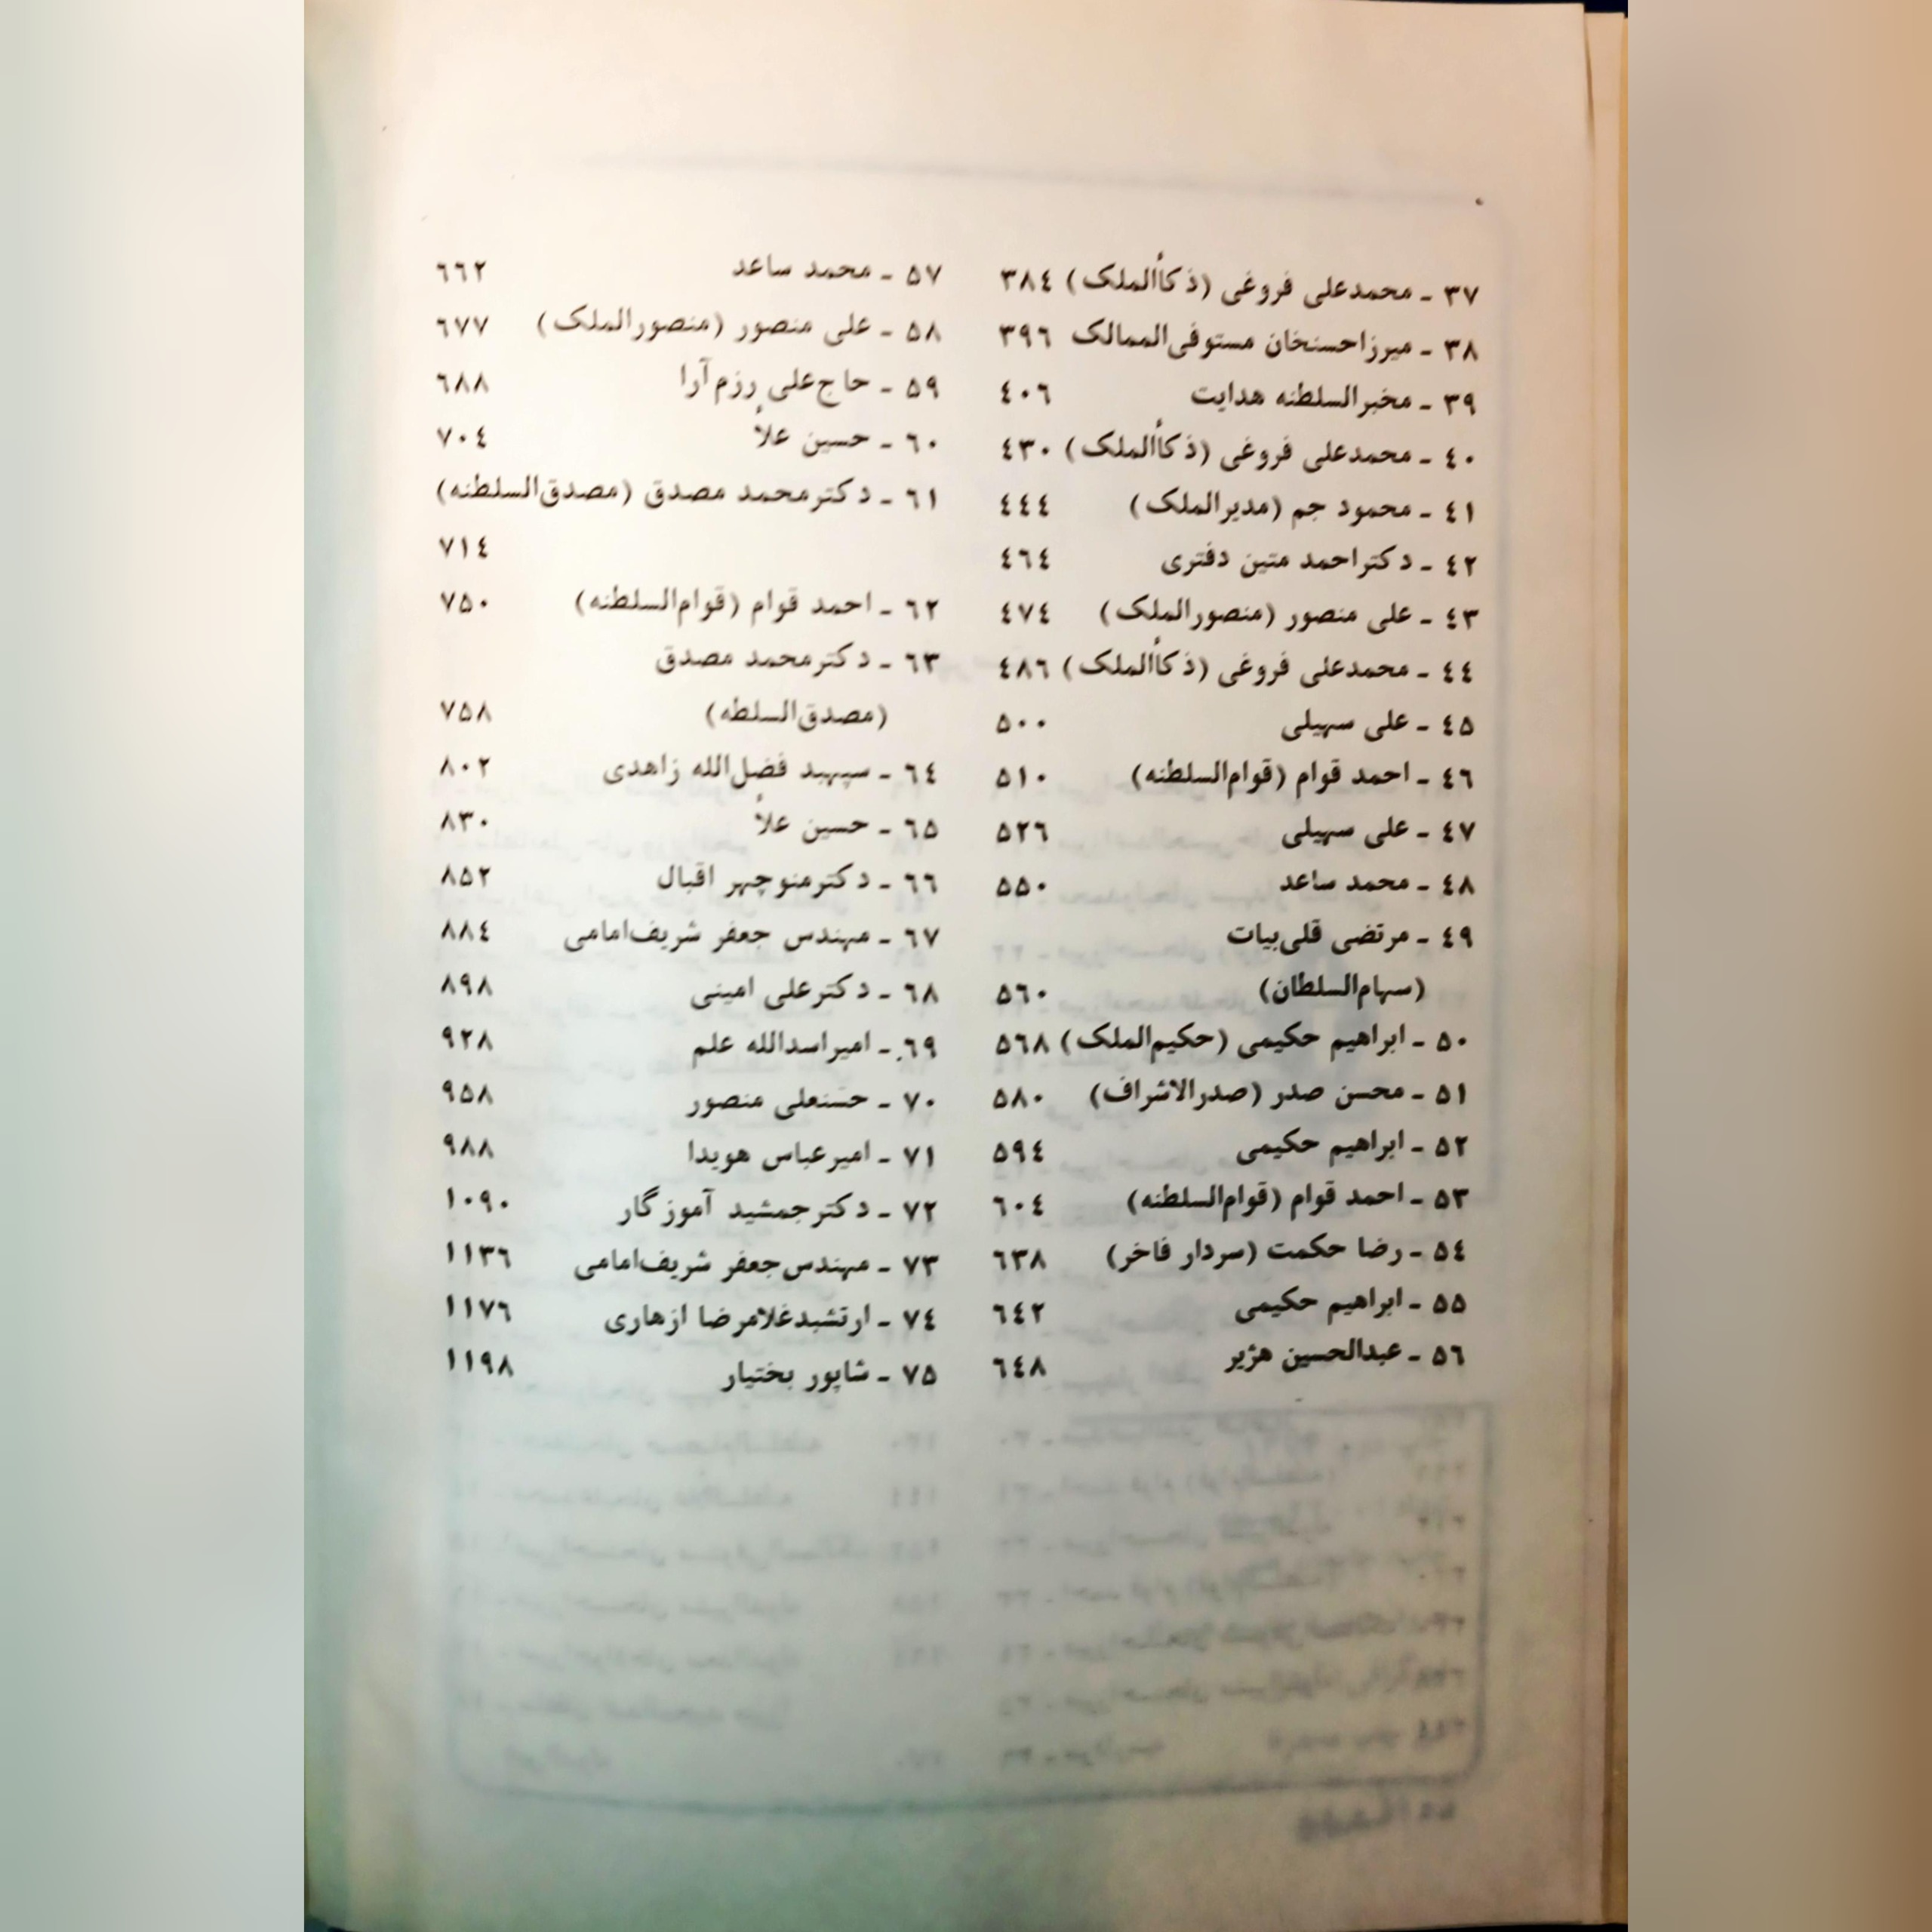 ۳۷ ـ محمدعلی فروغی (ذکاٴالملک) ۳۸٤
۳۸ ـ میرزاحسنخان مستوفی‌الممالک ۳۹٦
۳۹ ـ مخبرالسلطنه هدایت ٤۰٦
٤۰ ـ محمدعلی فروغی (ذکاٴالملک) ٤۳۰
٤۱ ـ محمود جم (مدیرالملک) ٤٤٤
٤۲ ـ دکتراحمد متین دفتری ٤٦٤
٤۳ ـ علی منصور (منصورالملک) ٤۷٤
٤٤ ـ محمدعلی فروغی (ذکاٴالملک) ٤۸٦
٤۵ ـ علی سهیلی ۵۰۰
٤٦ ـ احمد قوام (قوام‌السلطنه) ۵۱۰
٤۷ ـ علی سهیلی ۵۲٦
٤۸ ـ محمد ساعد ۵۵۰
٤۹ ـ مرتضی قلی‌بیات
(سهام‌السلطان) ۵٦۰
۵۰ ـ ابراهیم حکیمی (حکیم‌الملک) ۵٦۸
۵۱ ـ محسن صدر (صدرالاشراف) ۵۸۰
۵۲ ـ ابراهیم حکیمی ۵۹٤
۵۳ ـ احمد قوام (قوام‌السلطنه) ٦۰٤
۵٤ ـ رضا حکمت (سردار فاخر) ٦۳۸
۵۵ ـ ابراهیم حکیمی ٦٤۲
۵٦ ـ عبدالحسین هژیر ٦٤۸
۵۷ ـ محمد ساعد ٦٦۲
۵۸ ـ علی منصور (منصورالملک) ٦۷۷
۵۹ ـ حاج‌علی رزم‌آرا ٦۸۸
٦۰ ـ حسین علاٴ ۷۰٤
٦۱ ـ دکترمحمد مصدق (مصدق‌السلطنه)
۷۱٤
٦۲ ـ احمد قوام (قوام‌السلطنه) ۷۵۰
٦۳ ـ دکترمحمد مصدق
(مصدق‌السلطه) ۷۵۸
٦٤ ـ سپهبد فضل‌الله زاهدی ۸۰۲
٦۵ ـ حسین علاٴ ۸۳۰
٦٦ ـ دکترمنوچهر اقبال ۸۵۲
٦۷ ـ مهندس جعفر شریف‌امامی ۸۸٤
٦۸ ـ دکترعلی امینی ۸۹۸
٦۹ ـ امیراسدالله علم ۹۲۸
۷۰ ـ حسنعلی منصور ۹۵۸
۷۱ ـ امیرعباس هویدا ۹۸۸
۷۲ ـ دکترجمشید آموزگار ۱۰۹۰
۷۳ ـ مهندس‌جعفر شریف‌امامی ۱۱۳٦
۷٤ ـ ارتشبدغلامرضا ازهاری ۱۱۷٦
۷۵ ـ شاپور بختیار ۱۱۹۸